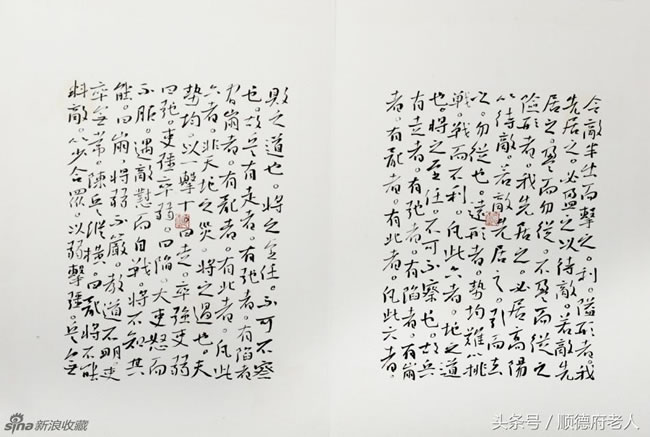 令敵半出而擊之。利。隘形者。我
先居之。必盈之以待敵。若敵先
居之。盈而勿從。不盈而從之。
險形者。我先居之。必居高陽
以待敵。若敵先居之。引而去
之。勿從也。遠形者。勢均難以挑
戰。戰而不利。凡此六者。地之道
也。將之至任。不可不察也。故兵
有走者。有弛者。有陷者。有崩
者。有亂者。有北者。凡此六者。
敗之道也。將之至任。不可不察
也。故兵有走者。有弛者。有陷者
有崩者。有亂者。有北者。凡此
六者。非天地之災。將之過也。夫
勢均。以一擊十。曰走。卒強吏弱
曰弛。吏強卒弱。曰陷。大吏怒而
不服。遇敵懟而自戰。將不知其
能。曰崩。將弱不嚴。教道不明。吏
卒無常。陳兵縱橫。曰亂。將不能
料敵。以少合眾。以弱擊強。兵無
sina新浪收藏
头条号／顺德府老人